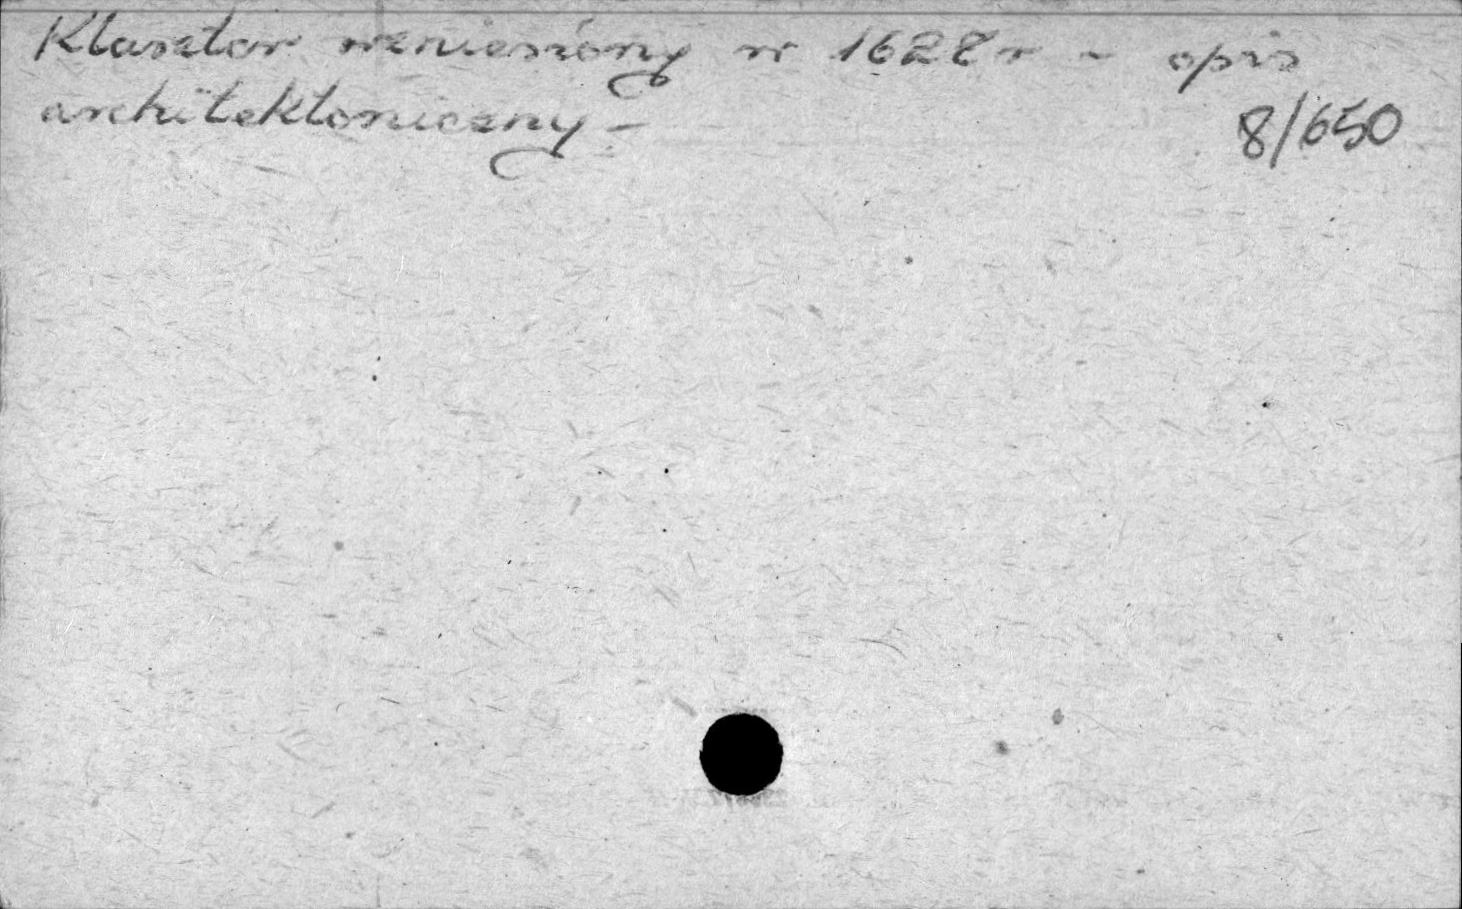 Klasztor wzniesiony w 1628 r – opis
architektoniczny –
8/650